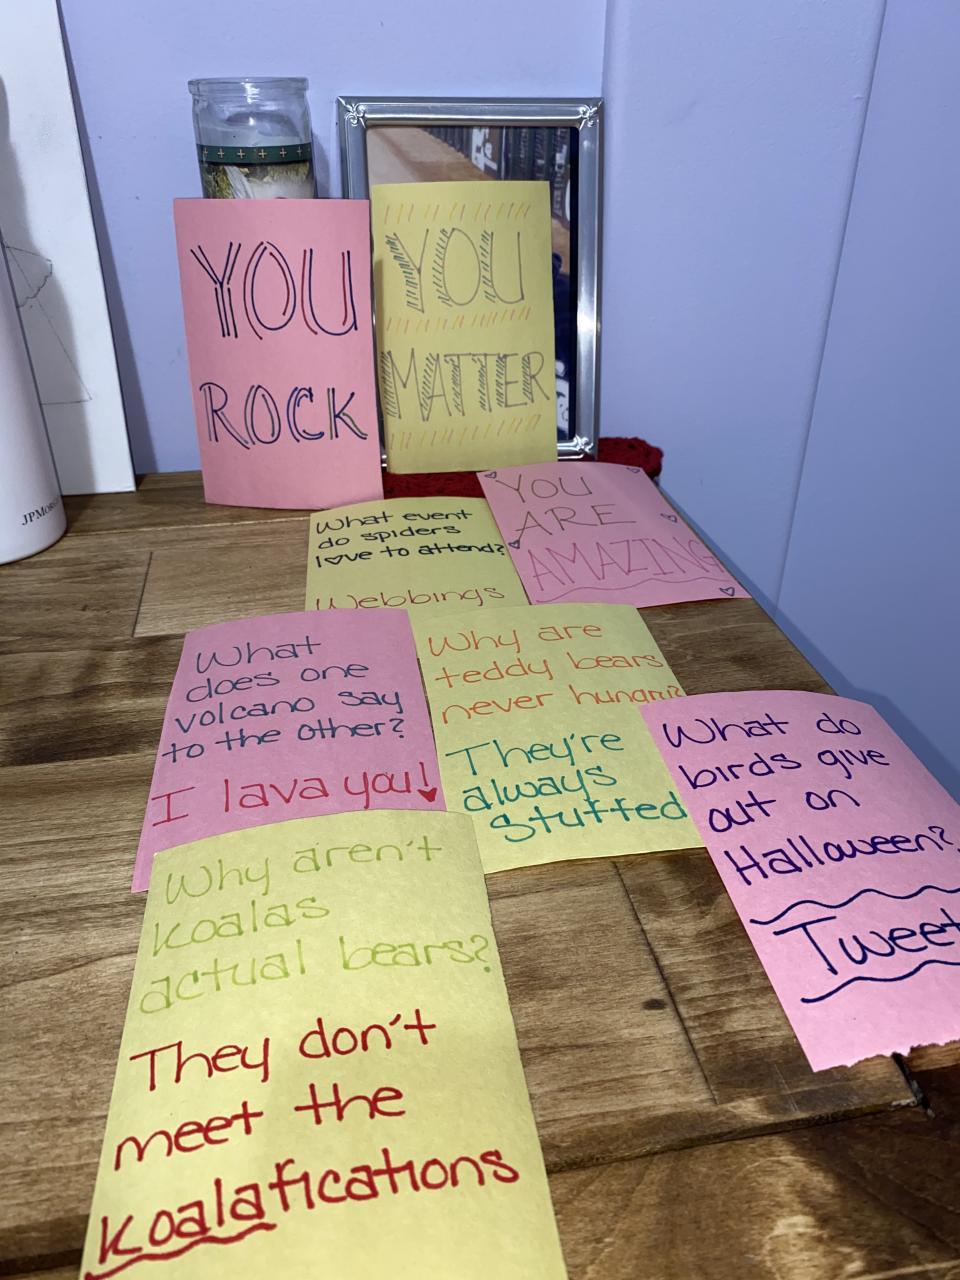 YOU
ROCK
YOU
MATTER
JPMor
YOU
ARE
AMAZING
What event
do spiders
love to attend?
Webbings
What
does one
volcano say
to the other?
I lava you!
Why are
teddy bears
never hungry?
They're
always
Stuffed
What do
birds give
out on
Halloween?
Tweet
Why aren't
koalas
actual bears?
They don't
meet the
koalafications